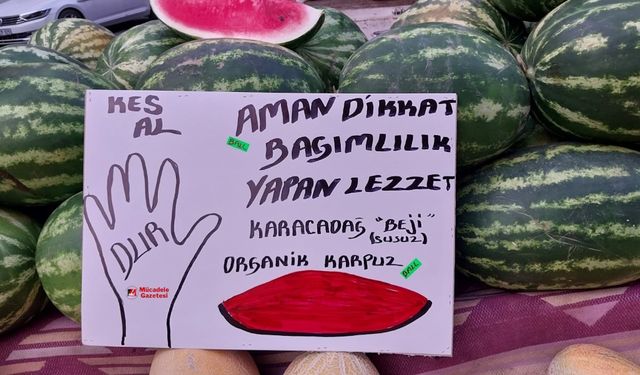 KES
AL
AMAN DİKKAT
BALL
BAĞIMLILIK
YAPAN LEZZET
DUR
KARACADAĞ "BEJİ"
(SUSUZ)
ORGANİK KARPUZ
BALL
Mücadele
Gazetesi